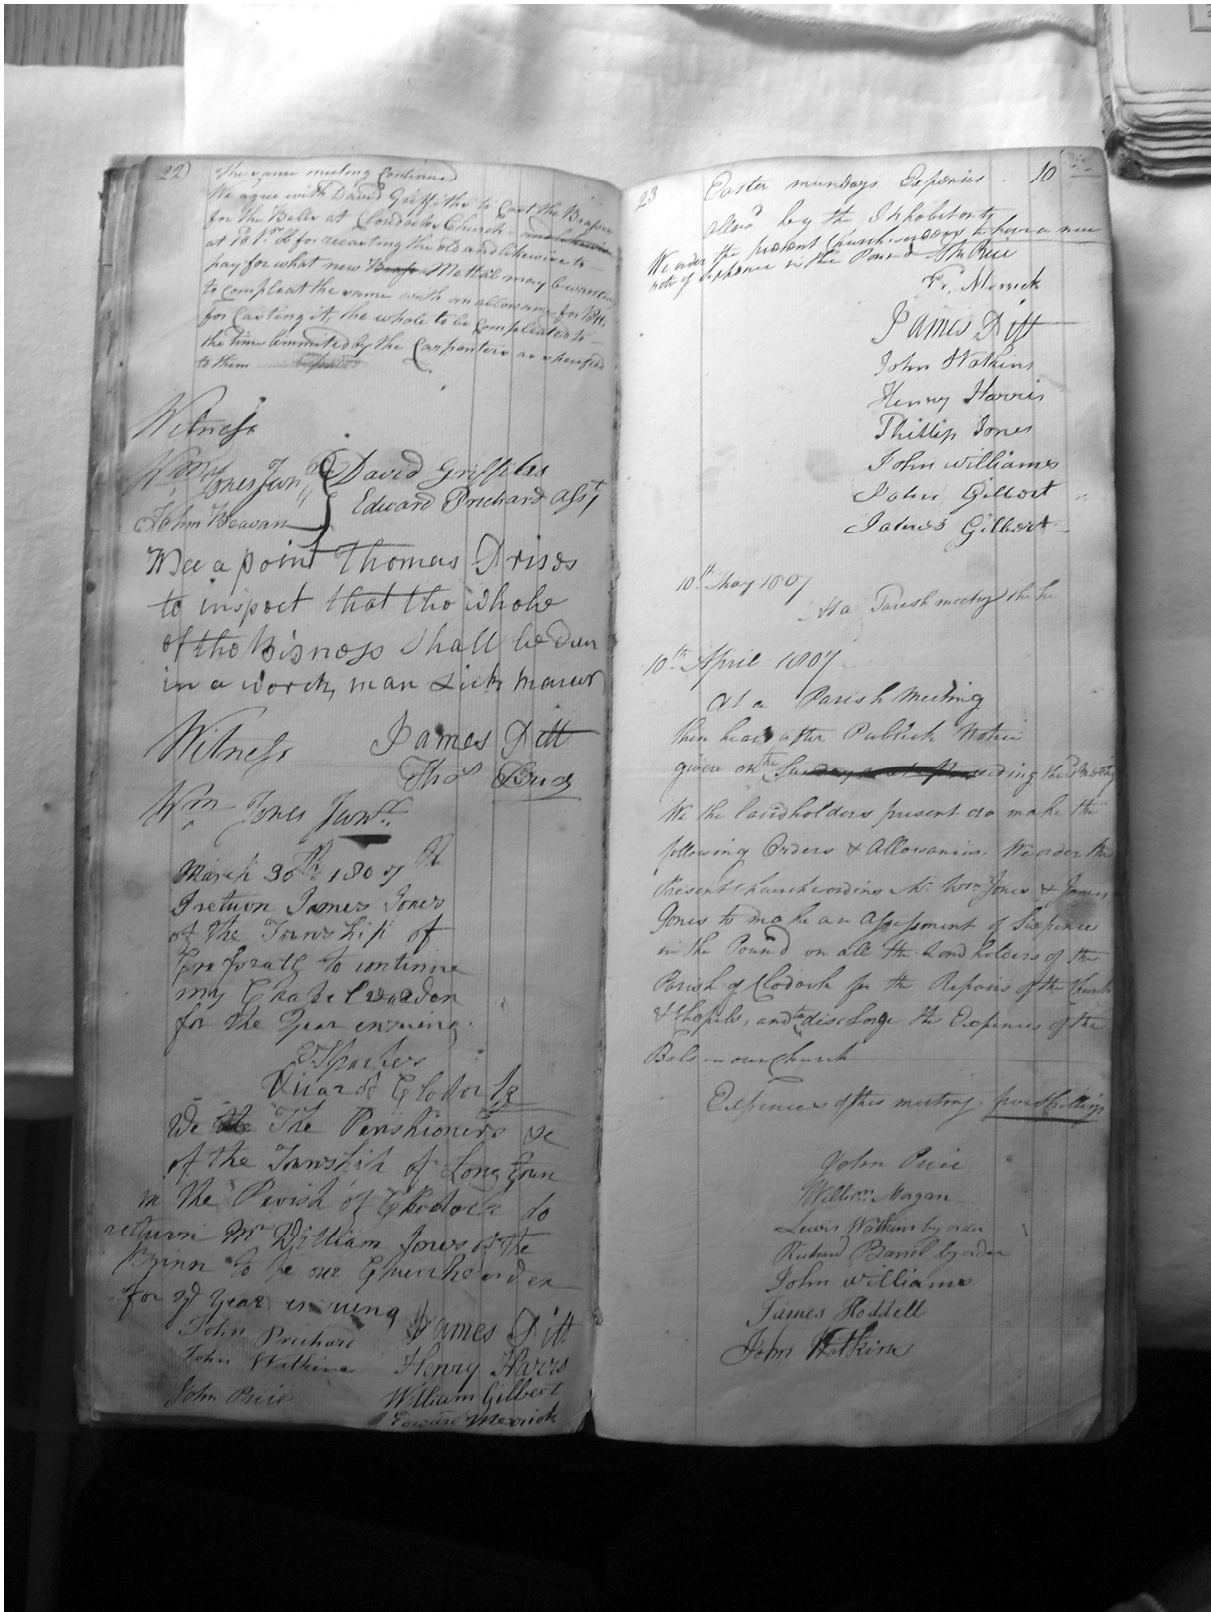 22
the same meeting Continued
We agree with David Griffiths to Cast the Brasses
for the Bells at Clondock Church
at for recasting the old and likewise to
pay for what new Brass Mettal may be wanting
to compleat the same with an allowance for
for Casting it, the whole to be compleated to
the time lemmited by the Carpenters as specified
to them
Witness
Wm Jones Junr
John Beavan
David Griffiths
Edward Prichard
Wee a point Thomas Prises
to inspect that the whole
of the Bisness Shall be dun
in a worck man Lick maner
Witness
James Pitt
Thos
Wm Jones Junr
March 30th 1807
I return James Jones
of the Township of
to continue
my Chapel warden
for the Year ensuing.
Vicar of Clodock
We The Parishioners
of the Township of Long Town
in the Parish of Clodock do
return Mr William Jones of the
to be our Churchwarden
for Year ensuing
John Prichard
James Pitt
John Watkins
Henry Harris
John Price
William Gilbert
Edward Merrick
23
Easter mundays Expences 10
allowd by the Inhabitants
We order the present Churchwardens to have a new
rate of sixpence in the Pound
Price
Merrick
James Pitt
John Watkins
Henry Harris
Phillip Jones
John williams
John Gilbert
James Gilbert
10th May 1807
At a Parish meeting
10th April 1807
At a Parish Meeting
then head after Publick Notice
given on the
We the landholders present do make the
following Orders & Allowances. We order the
Present Churchwardins Mr. Wm Jones & James
Jones to make an Assessment of Sixpence
in the Pound on all the Landholders of the
Parish of Clodock for the Repairs of the Church
& Chapels, and to discharge the Expences of the
Bels in our Church
Expences of this meeting
John Price
William Morgan
Lewis Watkins by order
Richard by order
John williams
James Hoddell
John Watkins